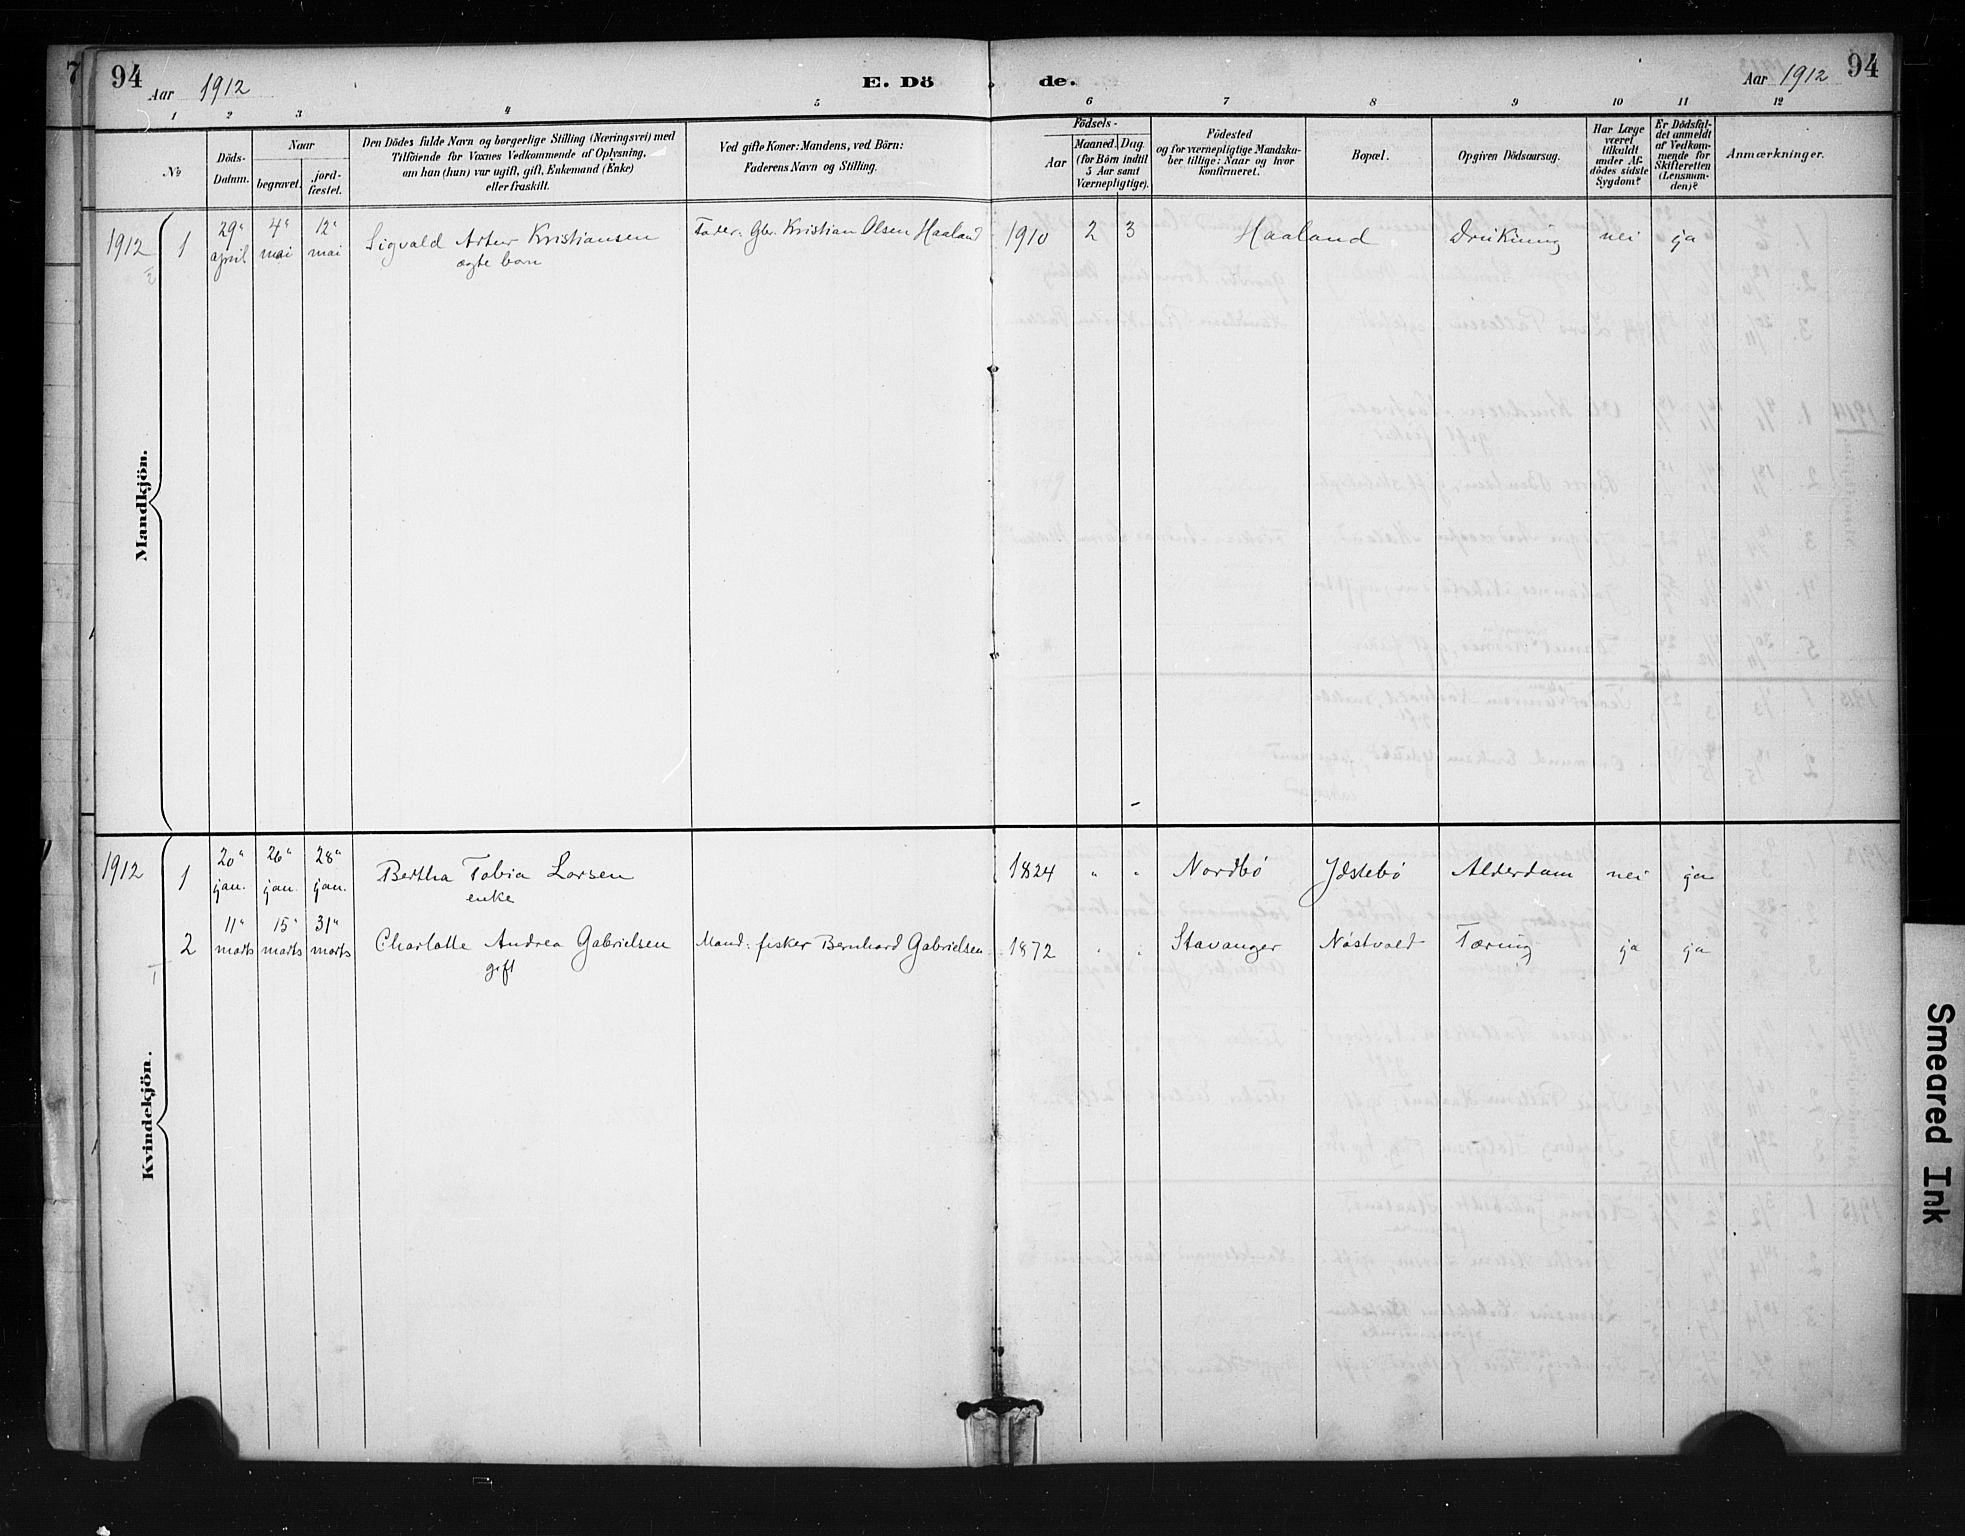 94
Aar 1912
E. Döde.
Aar 1912
94
1 2 3 4 5 6 7 8 9 10 11 12
№
Döds-Datum.
Naar
begravet.
jord-fæstet.
Den Dödes fulde Navn og borgerlige Stilling (Næringsvei) med
Tilföiende for Voxnes Vedkommende af Oplysning,
om han (hun) var ugift, gift, Enkemand (Enke)
eller fraskilt.
Ved gifte Koner: Mandens, ved Börn:
Faderens Navn og Stilling.
Födsels-
Aar
Maaned. Dag.
(for Börn indtil
5 Aar samt
Værnepligtige).
Födested
og for værnepligtige Mandska-
ber tillige: Naar og hvor
konfirmeret.
Bopæl.
Opgiven Dödsaarsag.
Har Læge
været
tilkaldt
under Af-
dödes sidste
Sygdom?
Er Dödsfal-
det anmeldt
af Vedkom-
mende for
Skifteretten
(Lensman-
den)?
Anmærkninger.
Mandkjön.
1912 1 29" april 4" mai 12" mai Sigvald Artur Kristiansen Fader: Gbr. Kristian Olsen Haaland 1910 2 3 Haaland Drukning nei ja
ægte barn
Kvindekjön.
1912 1 20" jan. 26" jan. 28" jan. Bertha Tobia Larsen 1824 " " Nordbö Ydstebö Alderdom nei ja
enke
2 11" marts 15" marts 31" marts Charlotte Andrea Gabrielsen Mand: fisker Bernhard Gabrielsen 1872 " " Stavanger Nöstvold Tæring ja ja
gift
Smeared Ink